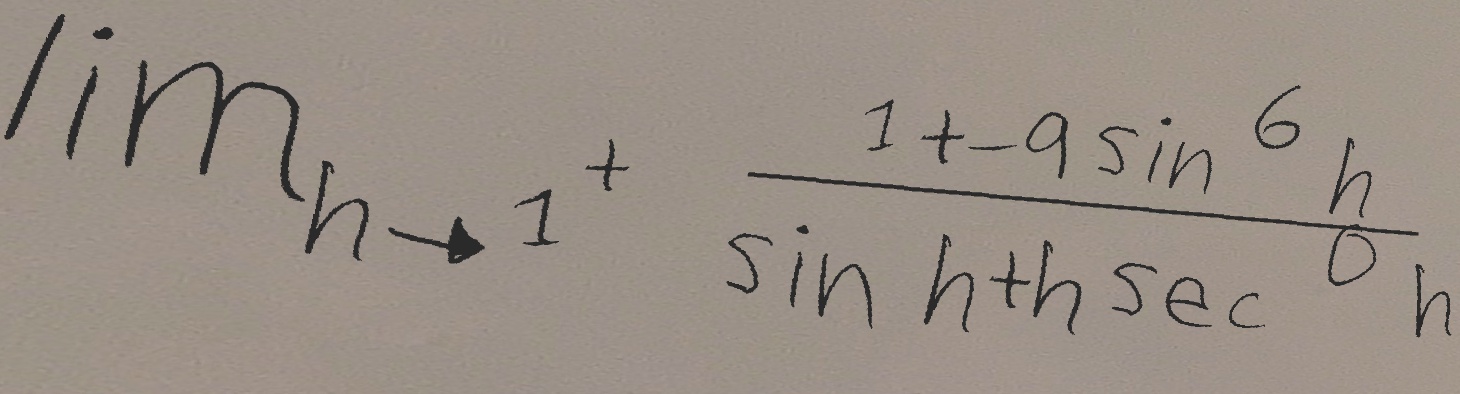 \lim_{h \to 1^+} \frac{1 + -9 \sin^6 h}{\sin h + h \sec^0 h}